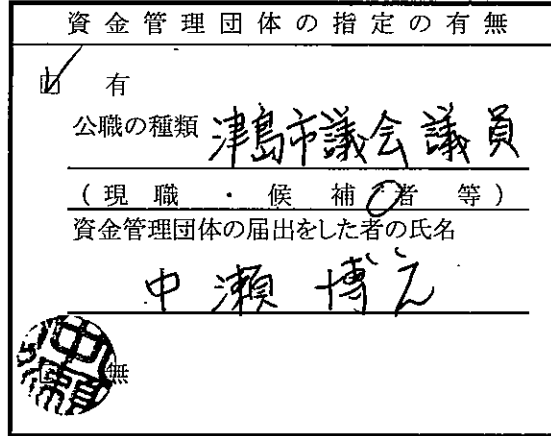 資金管理団体の指定の有無
有
公職の種類 津島市議会議員
（現職・候補者等）
資金管理団体の届出をした者の氏名
中瀬博之
無
中瀬